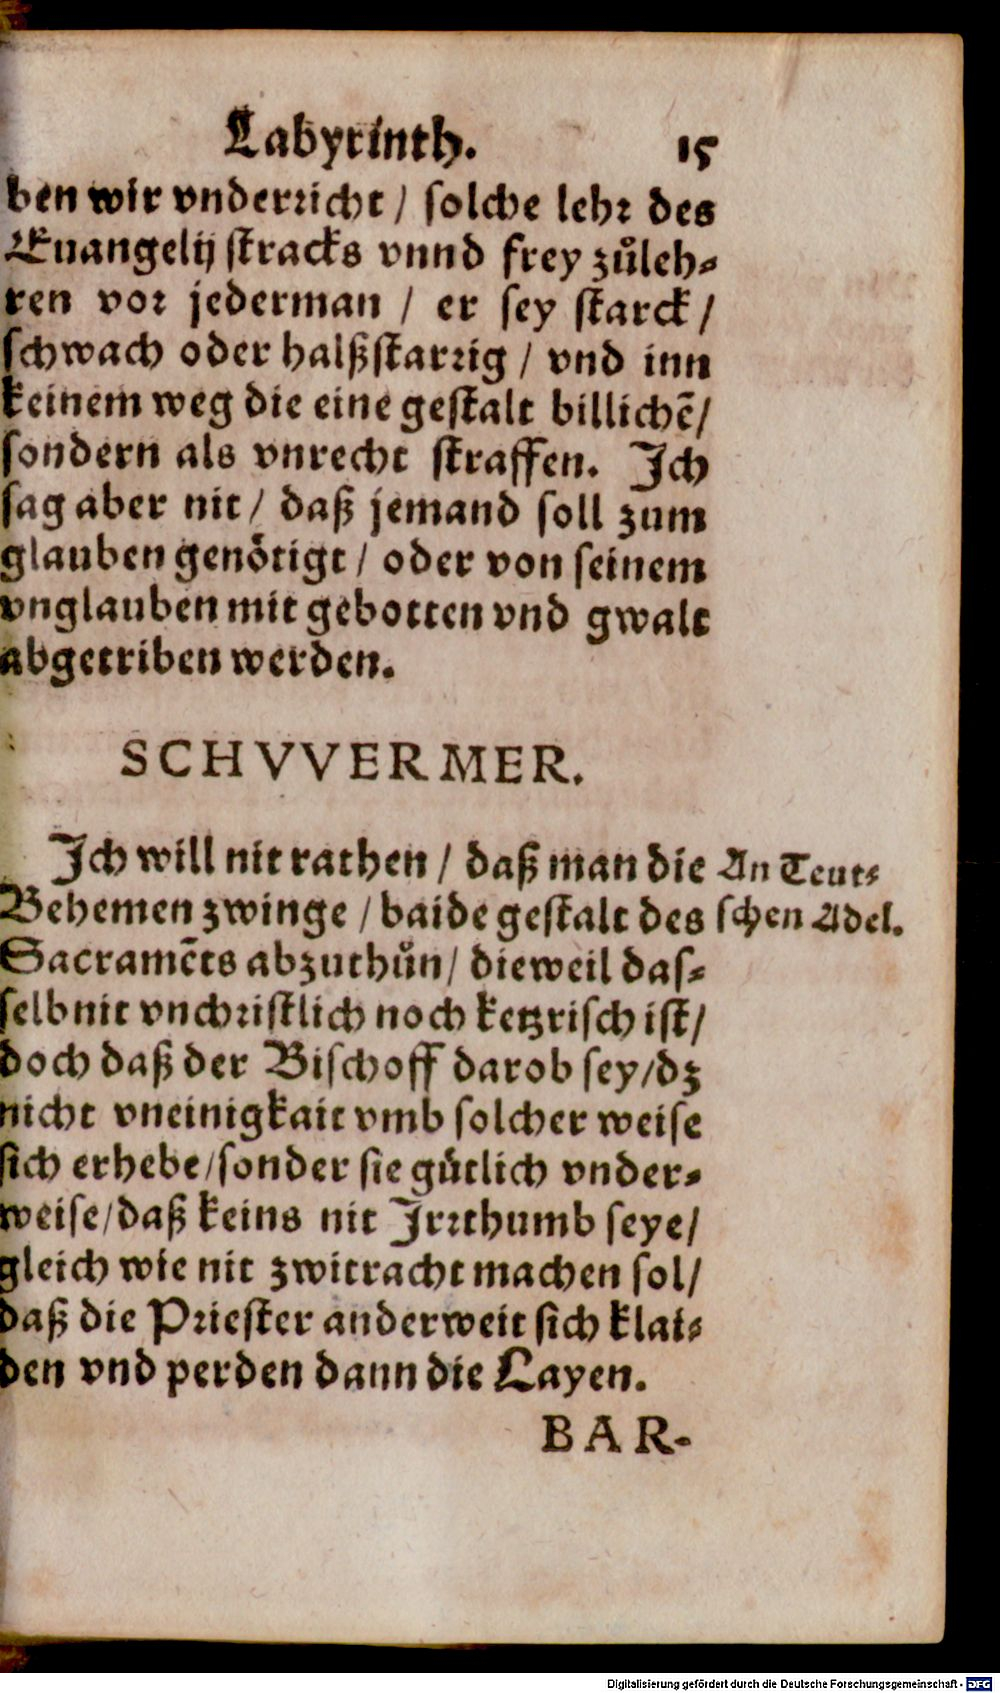 Labyrinth. 15
ben wir vnderricht / solche lehr des
Euangelij stracks vnnd frey zůleh-
ren vor jederman / er sey starck /
schwach oder halßstarrig / vnd inn
keinem weg die eine gestalt billichẽ /
sondern als vnrecht straffen. Ich
sag aber nit / daß jemand soll zum
glauben genötigt / oder von seinem
vnglauben mit gebotten vnd gwalt
abgetriben werden.
SCHVVERMER.
Ich will nit rathen / daß man die
Behemen zwinge / baide gestalt des
Sacramẽts abzuthůn / dieweil das-
selb nit vnchristlich noch ketzrisch ist /
doch daß der Bischoff darob sey / dz
nicht vneinigkait vmb solcher weise
sich erhebe / sonder sie gütlich vnder-
weise / daß keins nit Irrthumb seye /
gleich wie nit zwitracht machen sol /
daß die Priester anderweit sich klai-
den vnd perden dann die Layen.
An Teut-
schen Adel.
BAR-
Digitalisierung gefördert durch die Deutsche Forschungsgemeinschaft - DFG